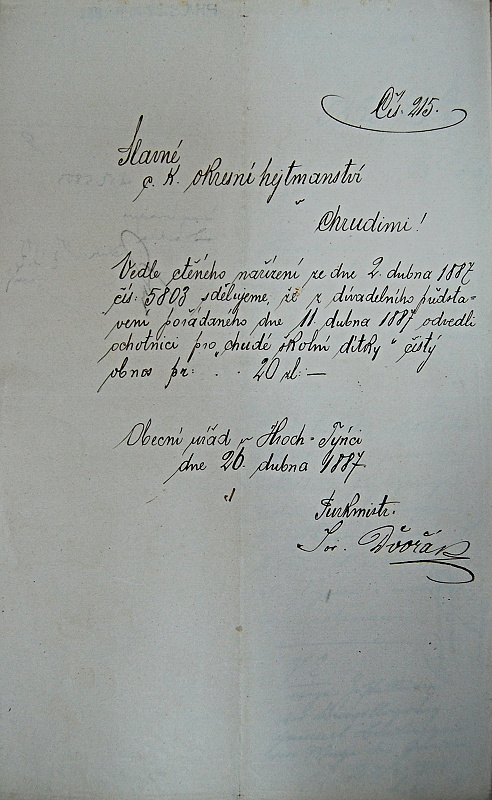 Čís. 215.
Slavné
c. k. okresní hejtmanství
v
Chrudimi!
Vedle ctěného nařízení ze dne 2. dubna 1887
čís. 5803 sdělujeme, že z divadelního předsta-
vení pořádaného dne 11. dubna 1887 odvedli
ochotníci pro „chudé školní dítky“ čistý
obnos pr: . . 20 zl: —
Obecní úřad v Hroch-Týnci
dne 26. dubna 1887
Purkmistr:
Jos. Dvořák